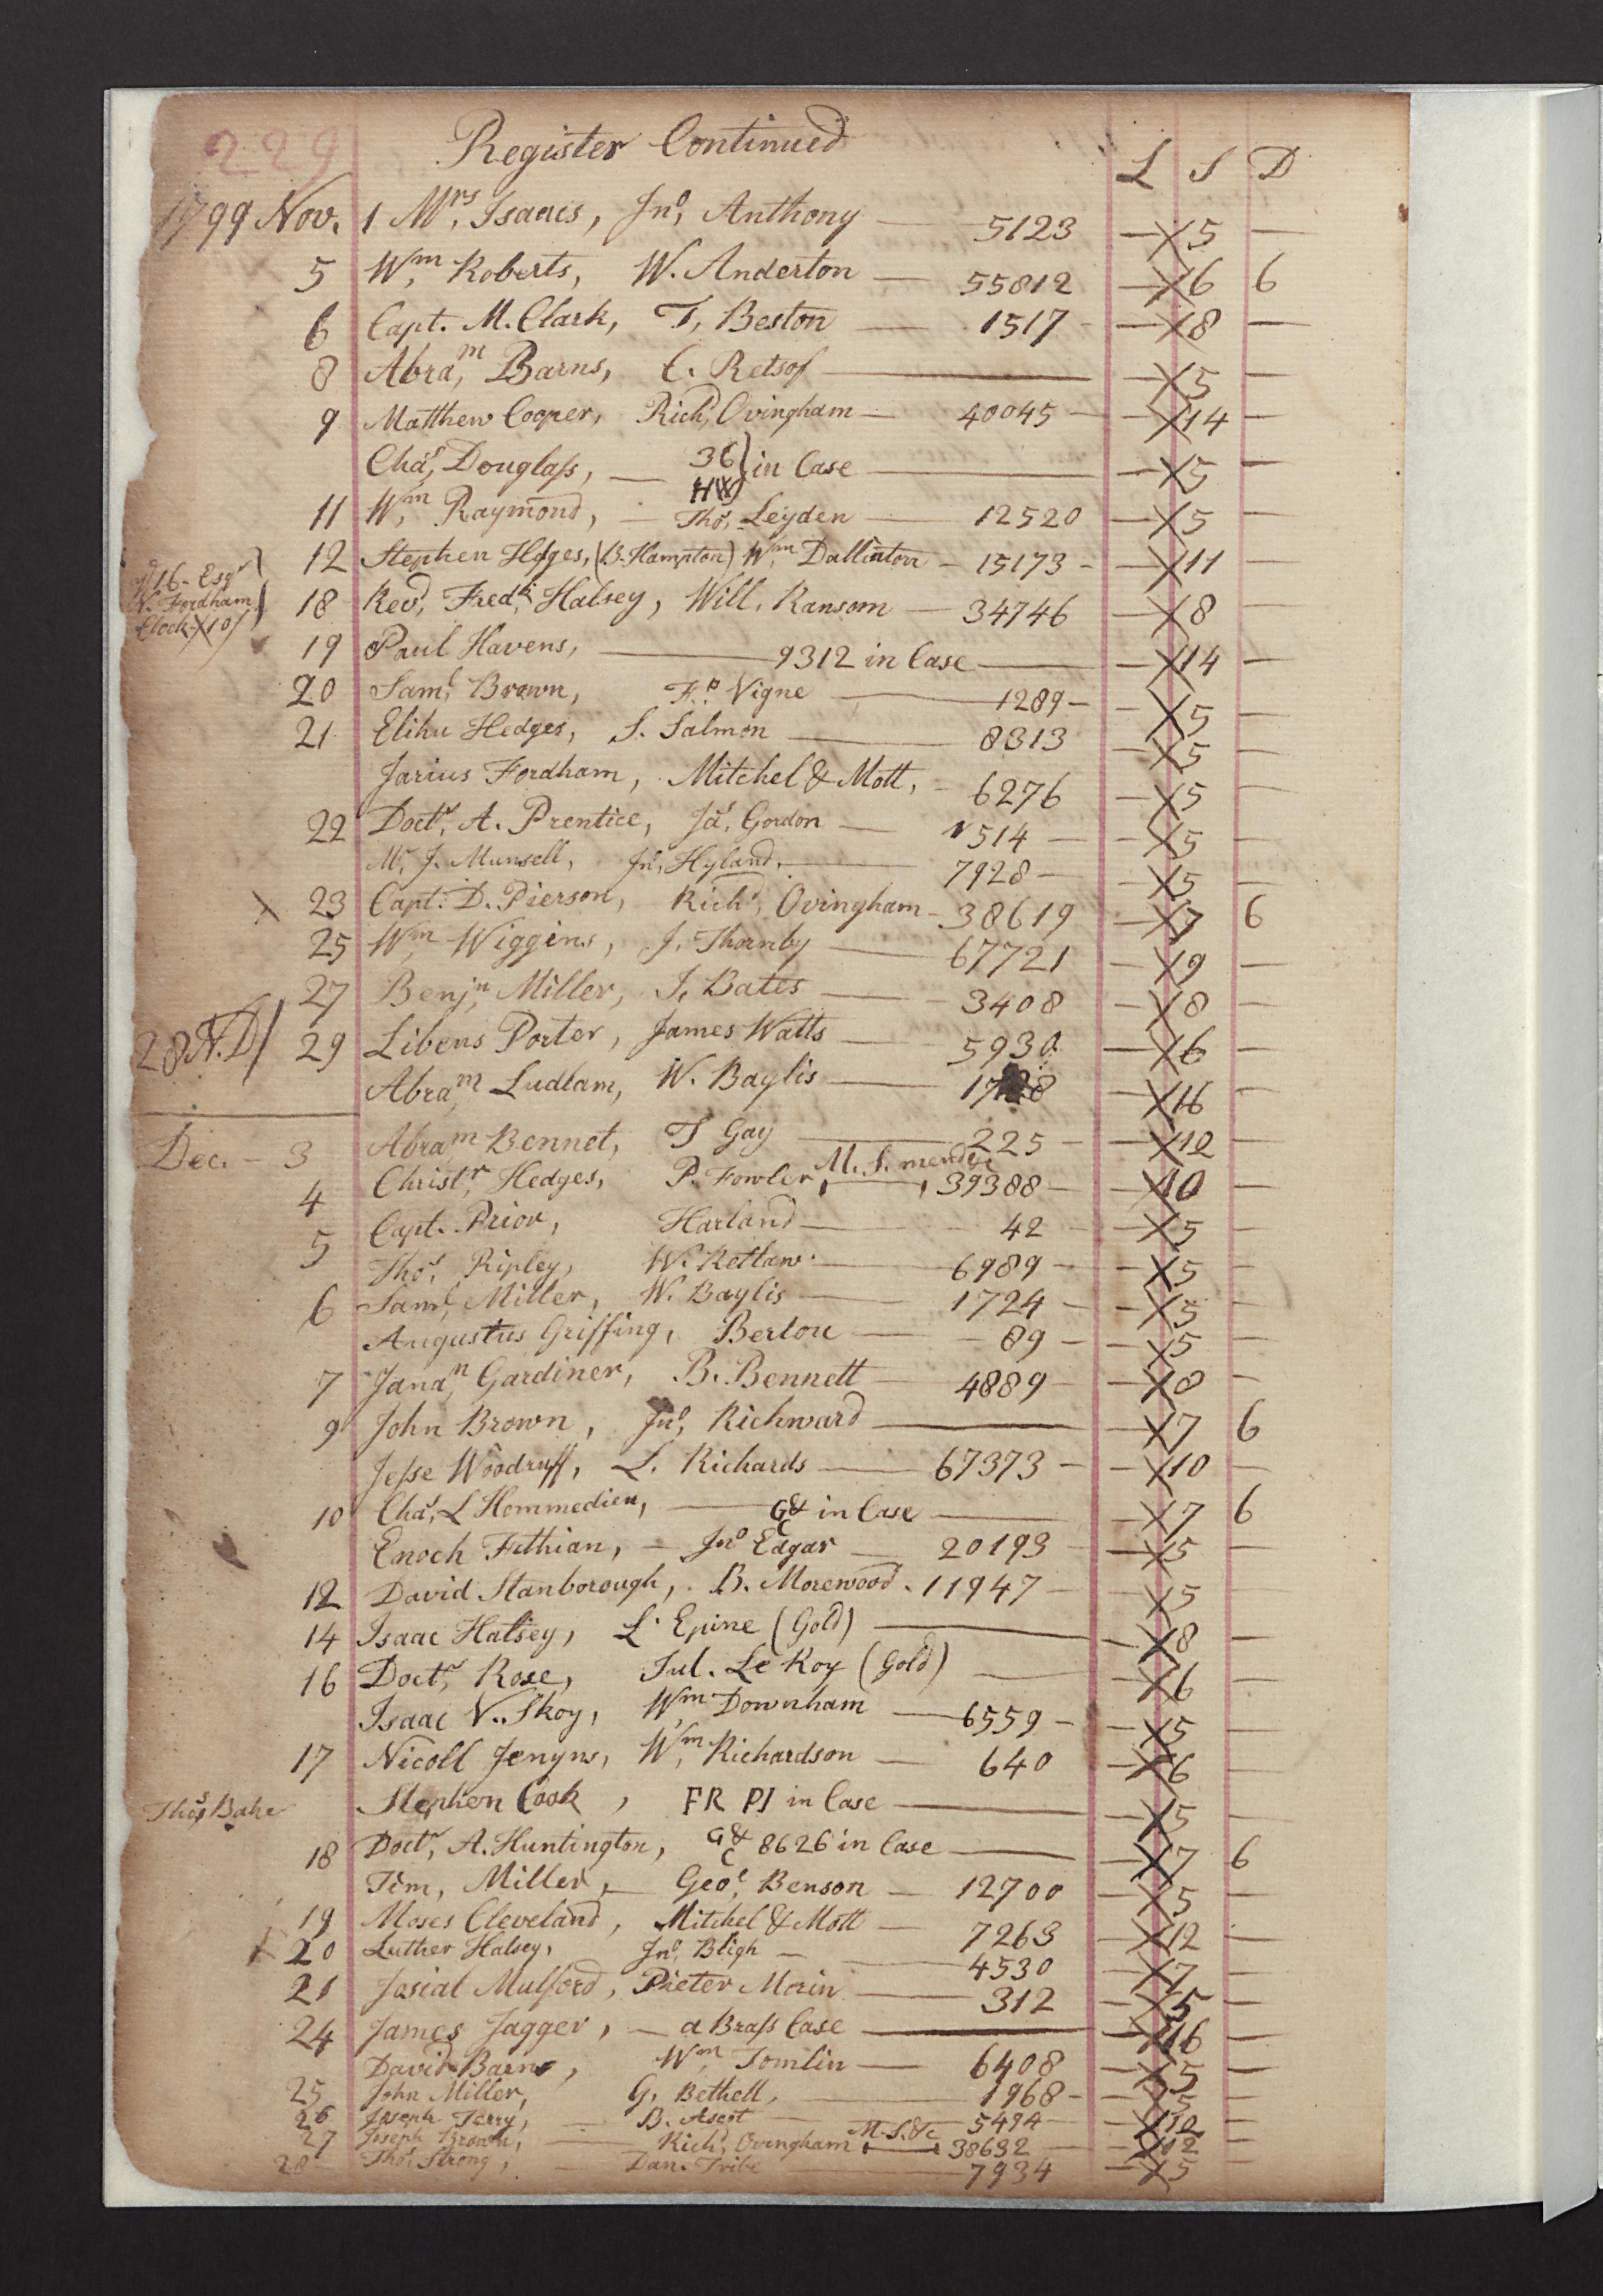 229 Register Continued
L S D
1799 Nov. 1 Mrs, Isaacs, Jno, Anthony — 5123 — X 5 —
5 Wm, Roberts, W. Anderton — 55812 — X 6 6
6 Capt. M. Clark, T, Beston — 1517 — X 8 —
8 Abram, Barns, C. Retsof — X 5 —
9 Matthew Cooper, Richd, Ovingham — 40045 — X 14 —
Chas, Douglass, — 36 HW } in Case — X 5 —
11 Wm, Raymond, — Thos, Leyden — 12520 — X 5 —
12 Stephen Hdges, (B. Hampton) Wm, Dallinton — 15173 — X 11 —
16 - Esqr N. Fordham Clock X 10/
18 Revd, Fredk, Halsey, Will. Ransom — 34746 — X 8 —
19 Paul Havens, — 9312 in Case — X 14 —
20 Saml, Brown, Fs. Vigne — 1289 — X 5 —
21 Elihu Hedges, S. Salmon — 8313 — X 5 —
Jarius Fordham, Mitchel & Mott, — 6276 — X 5 —
22 Doctr, A. Prentice, Jas, Gordon — 1514 — X 5 —
Mr, J. Munsell, Jno, Hyland, — 7928 — X 5 —
X 23 Capt. D. Pierson, Richd, Ovingham — 38619 — X 7 6
25 Wm, Wiggins, J. Thornby — 67721 — X 9 —
27 Benjn, Miller, J. Bates — 3408 — X 8 —
28 N.D/ 29 Libens Porter, James Watts — 5930 — X 6 —
Abram, Ludlam, W. Baylis — X 16 —
Dec. — 3 Abram, Bennet, T Gay — 225 — X 12 —
4 Christr, Hedges, P. Fowler, M. S. mendd &c 39388 — X 10 —
5 Capt. Prior, Harland — 42 — X 5 —
Thos, Ripley, W. Retlaw — 6989 — X 5 —
6 Saml, Miller, W. Baylis — 1724 — X 5 —
Augustus Griffing, Berlou — 89 — X 5 —
7 Janan, Gardiner, B. Bennett — 4889 — X 8 —
9 John Brown, Jno, Richward — X 7 6
Jesse Woodruff, L. Richards — 67373 — X 10 —
10 Chas, L Hommedieu, — G&C in Case — X 7 6
Enoch Fithian, — Jno Edgar — 20193 — X 5 —
12 David Stanborough, B. Morewood. 11947 — X 5 —
14 Isaac Halsey, L'Epine (Gold) — X 8 —
16 Doctr, Rose, Jul. Le Roy (Gold) — X 6 —
Isaac V. Skoy, Wm, Downham — 6559 — X 5 —
17 Nicoll Jenyns, Wm, Richardson — 640 — X 6 —
Thos Bake Stephen Cook, FR PI in Case — X 5 —
18 Doctr, A. Huntington, G&C 8626 in Case — X 7 6
Tim, Miller, — Geoe, Benson — 12700 — X 5 —
19 Moses Cleveland, Mitchel & Mott — 7263 — X 12 —
X 20 Luther Halsey, Jno, Bligh — 4530 — X 7 —
21 Josial Mulford, Pieter Morin — 312 — X 5 —
24 James Jagger, — a Brass Case — X 16 —
David Barns, Wm, Tomlin — 6408 — X 5 —
25 John Miller, G. Bethell, — 1968 — X 5 —
26 Joseph Terry, — B. Asept — 5494 — X 10 —
27 Joseph Brown, — Richd, Ovingham M. S. &c 38632 — X 12 —
28 Thos, Strong, — Dan. Tribe — 7934 — X 5 —